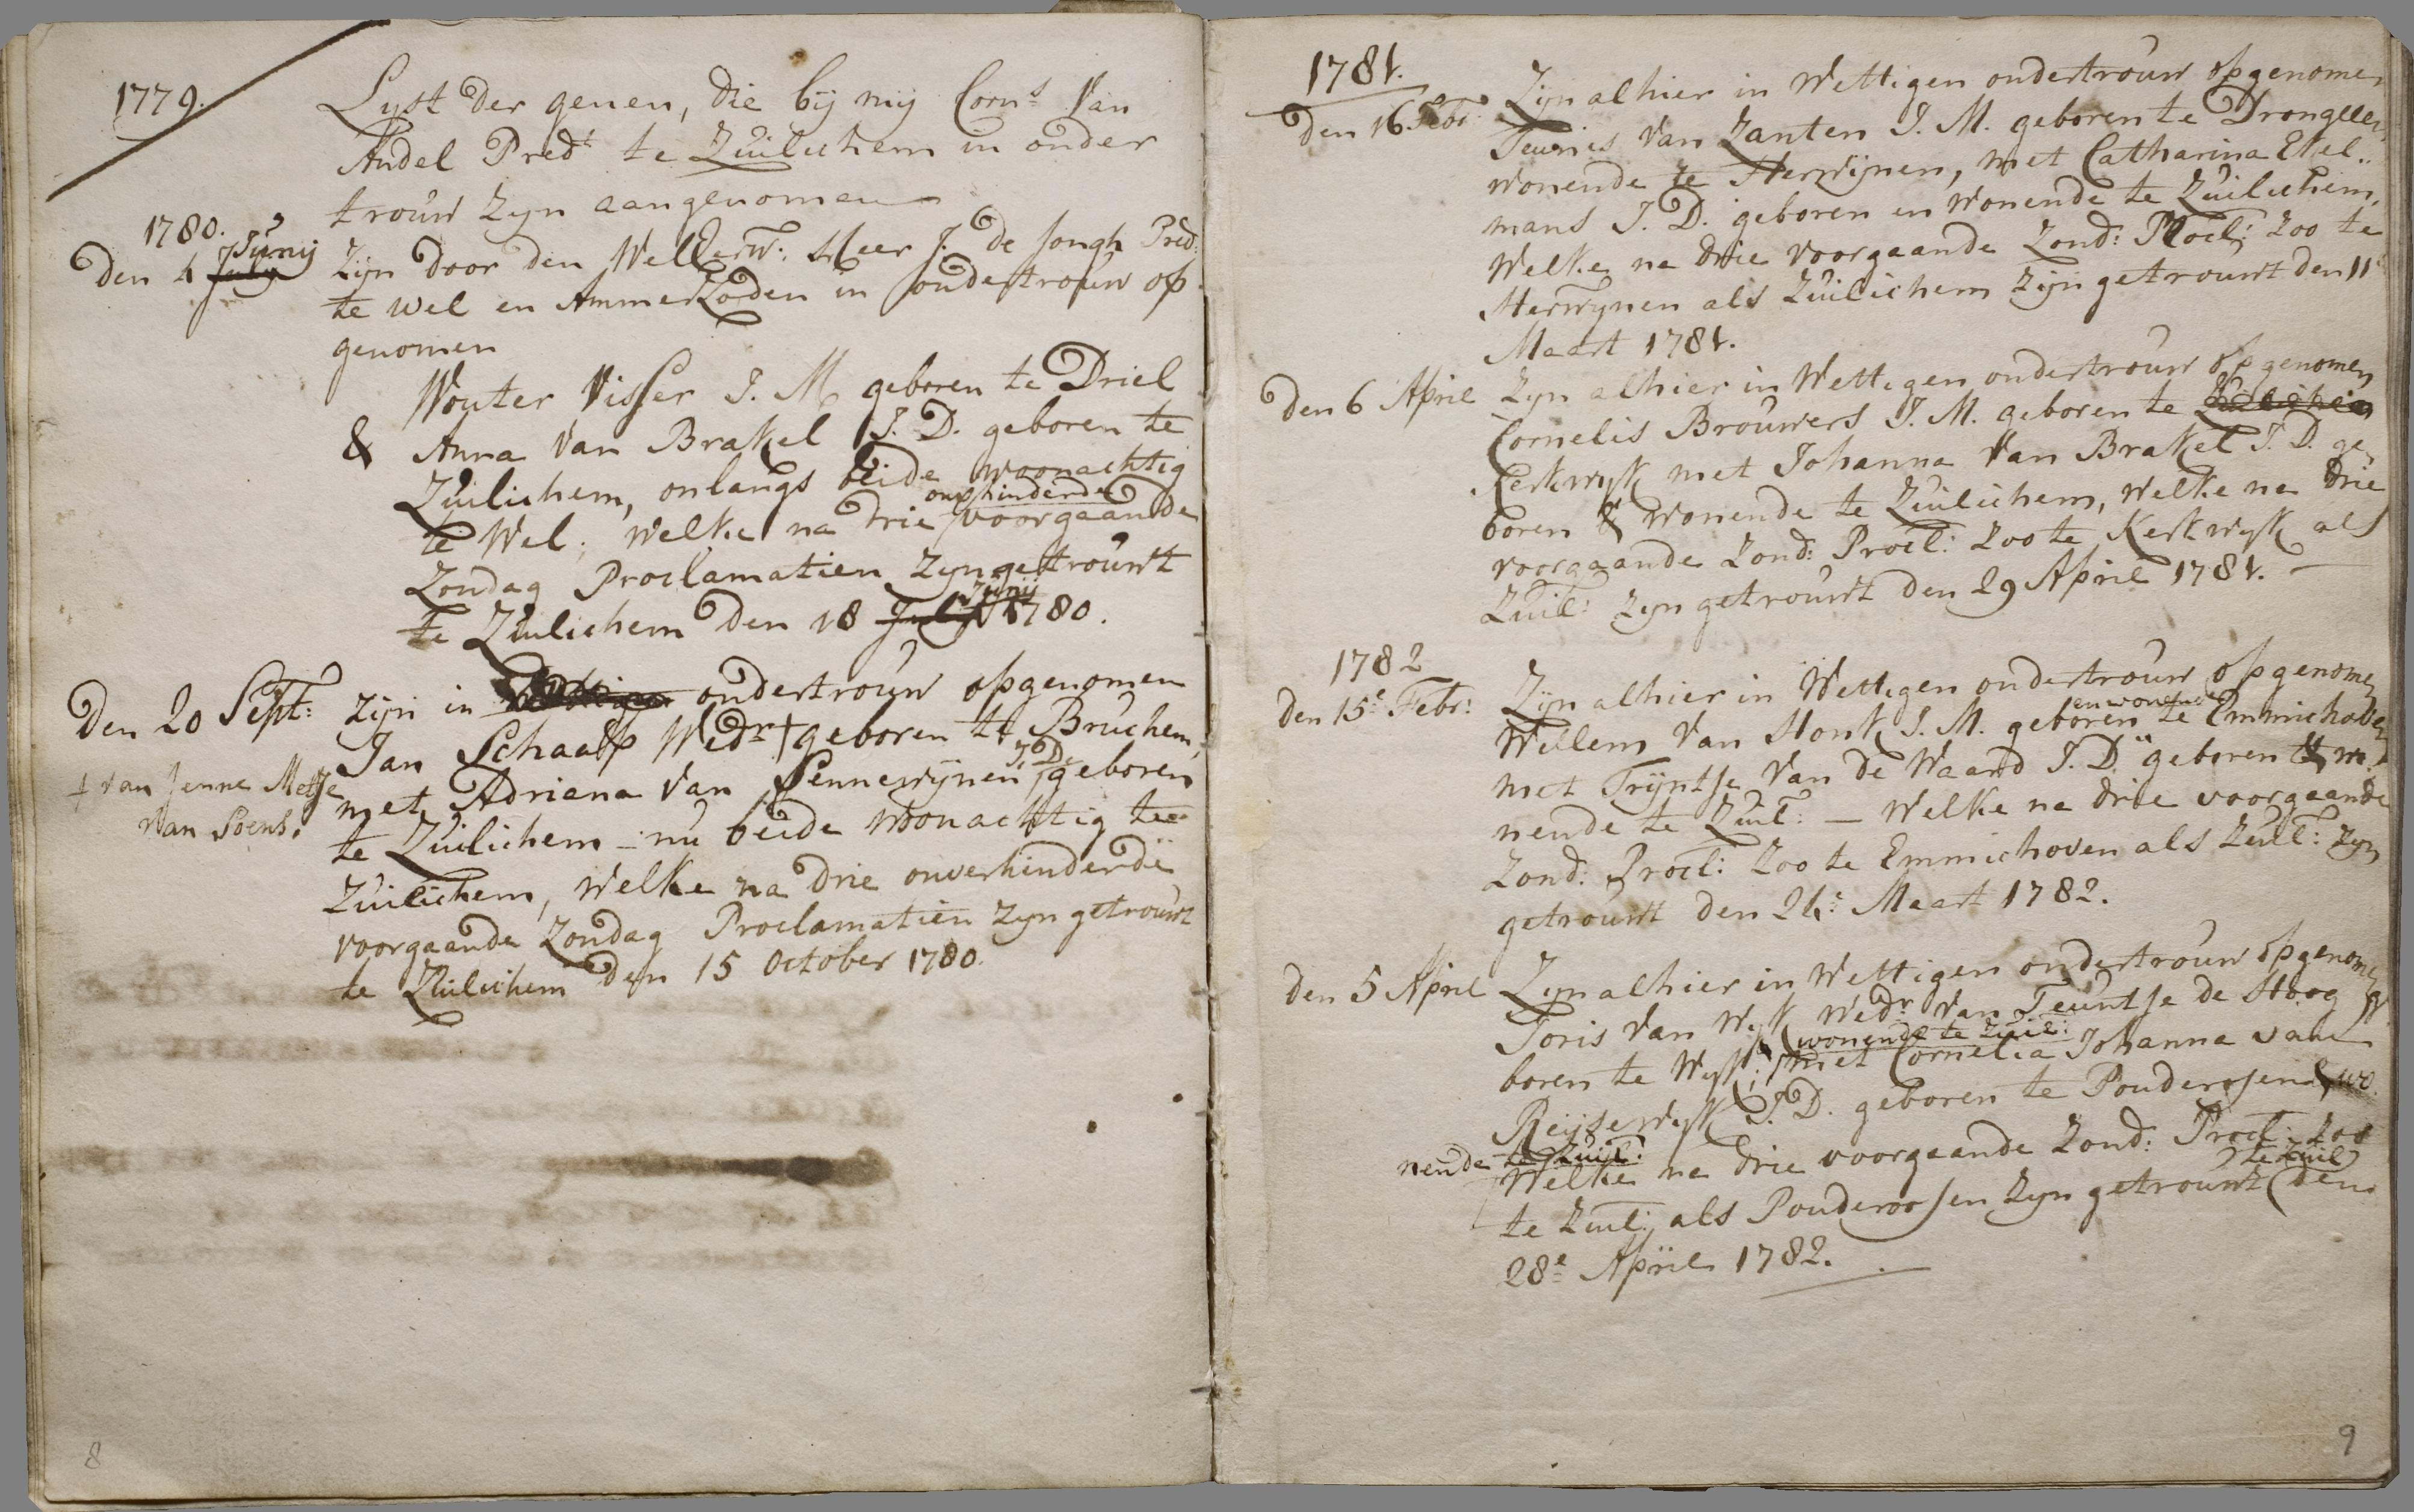 1779.
Lyst der genen, die bij mij Corns Van
Andel Predt te Zuilichem in onder
trouw Zyn aangenomen
1780.
Junij
Den 4 July Zijn door den WelEerw: Heer J. de Jongh Pred:
te wel en Ammerzoden in ondertrouw op
genomen
Wouter Visser J. M. geboren te Driel
& Anna Van Brakel J. D. geboren te
Zuilichem, onlangs beide woonachtig
onverhinderde
te Wel; welke na drie voorgaande
Zondag Proclamatien Zyn getrouwt
Junij
te Zuilichem den 18 July 1780.
Den 20 Sept: Zijn in wettigen ondertrouw opgenomen
Jan Schaap Wedr † geboren te Bruchem,
† van Jenne Metje
van Soens.
J. D.
met Adriana Van Pennewijnen geboren
te Zuilichem - nu beide woonachtig te
Zuilichem, welke na drie onverhinderde
voorgaande Zondag Proclamatien Zyn getrouwt
te Zuilichem den 15 October 1780.
8
1781.
Den 16. Febr: Zijn alhier in Wettigen ondertrouw opgenomen
Teunis Van Zanten J. M. geboren te Drongelen
wonende te Herwijnen, met Catharina Ekel..
mans J. D. geboren en wonende te Zuilichem,
Welke na drie voorgaande Zond: Procl: Zoo te
Herwynen als Zuilichem Zijn getrouwt den 11
Maart 1781.
Den 6 April Zyn alhier in Wettigen ondertrouw opgenomen
Cornelis Brouwers J. M. geboren te Zuilichem
Kerkwyk met Johanna Van Brakel J. D. ge
boren & wonende te Zuilichem, welke na drie
voorgaande Zond: Procl: Zoo te Kerkwyk als
Zuil: Zyn getrouwt den 29 April 1781. —
1782
Den 15e Febr: Zijn alhier in Wettigen ondertrouw opgenomen
en wonende
Willem Van Honk J. M. geboren te Emmichoven
met Trijntje Van de Waard J. D. geboren & wo
nende te Zuil: — Welke na drie voorgaande
Zond: Procl: Zoo te Emmichoven als Zuil: Zyn
getrouwt den 24e Maart 1782.
den 5 April Zyn alhier in Wettigen ondertrouw opgenomen
Joris Van Wyk Wedr Van Teuntje de Hoog ge
wonende te Zuil:
boren te Wyk; met Cornelia Johanna van
Reijsewyk J. D. geboren te Pouderojen & wo
nende te Zuil:
Welke na drie voorgaande Zond: Procl: Zoo
te Zuil
te Zuil: als Pouderoosen Zyn getrouwt den
28e April 1782.
9